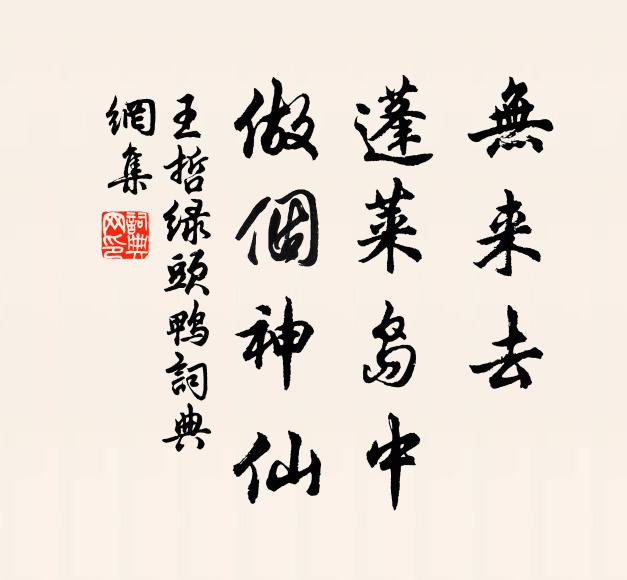 無来去
蓬莱島中
做個神仙
王哲绿頭鴨詞典
網集
詞典
网印